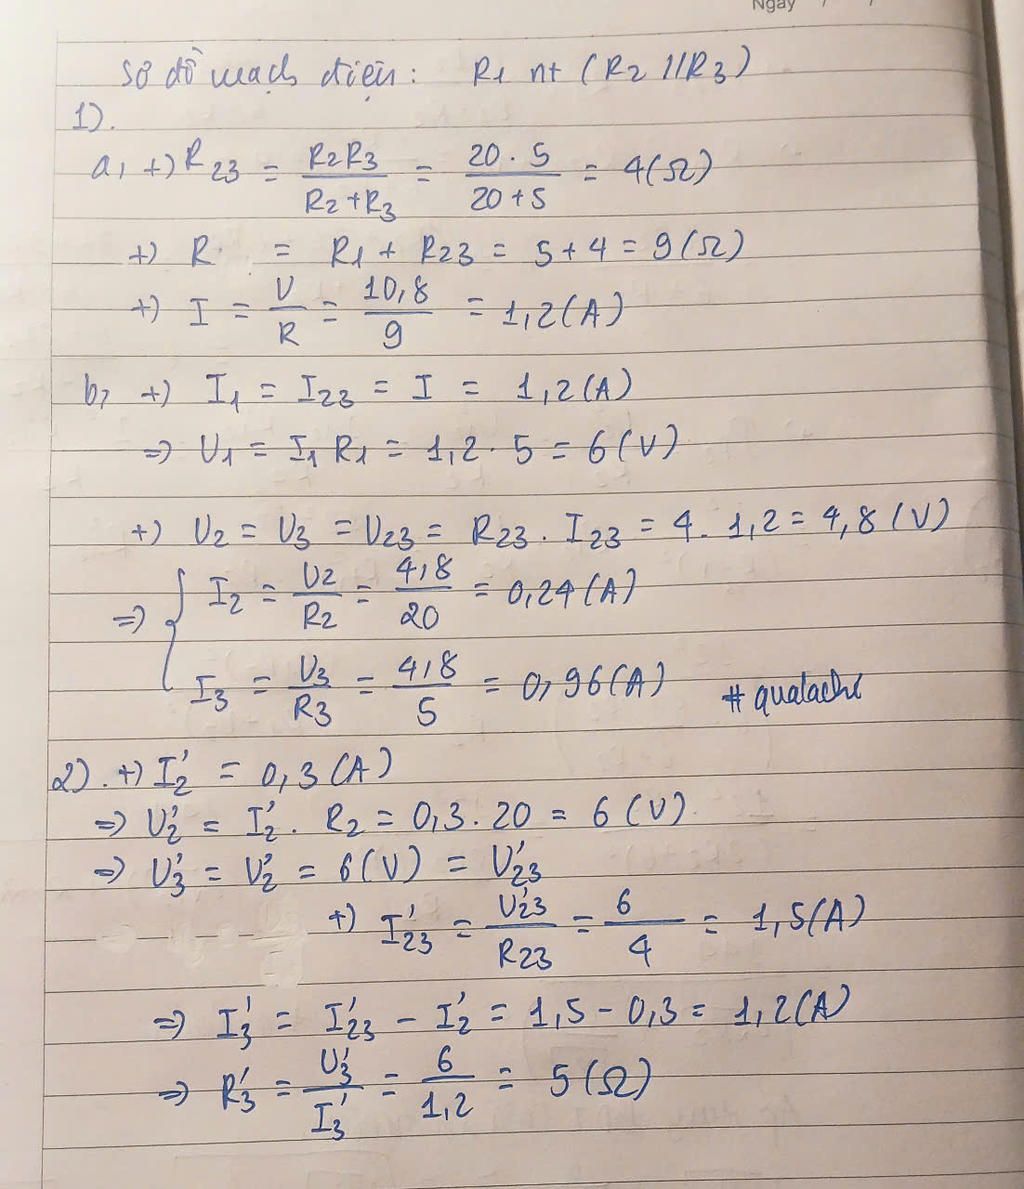 Ngày / /
Sơ đồ mạch điện: R1 nt (R2 //R3)
1).
a, +) R23 = R2R3 / R2+R3 = 20 . 5 / 20+5 = 4(Ω)
+) R = R1 + R23 = 5+4 = 9(Ω)
+) I = U / R = 10,8 / 9 = 1,2(A)
b, +) I1 = I23 = I = 1,2(A)
=> U1 = I1 R1 = 1,2 . 5 = 6(V)
+) U2 = U3 = U23 = R23 . I23 = 4 . 1,2 = 4,8(V)
=> { I2 = U2 / R2 = 4,8 / 20 = 0,24(A)
I3 = U3 / R3 = 4,8 / 5 = 0,96(A) # qualachi
2). +) I'2 = 0,3(A)
=> U'2 = I'2 . R2 = 0,3 . 20 = 6(V)
=> U'3 = U'2 = 6(V) = U'23
+) I'23 = U'23 / R23 = 6 / 4 = 1,5(A)
=> I'3 = I'23 - I'2 = 1,5 - 0,3 = 1,2(A)
=> R'3 = U'3 / I'3 = 6 / 1,2 = 5(Ω)